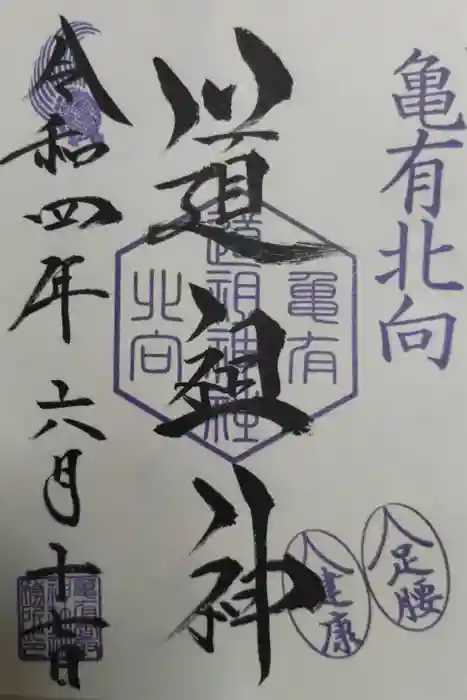 亀有北向
道祖神
亀有
道祖神社
北向
足腰
健康
令和四年六月十一日